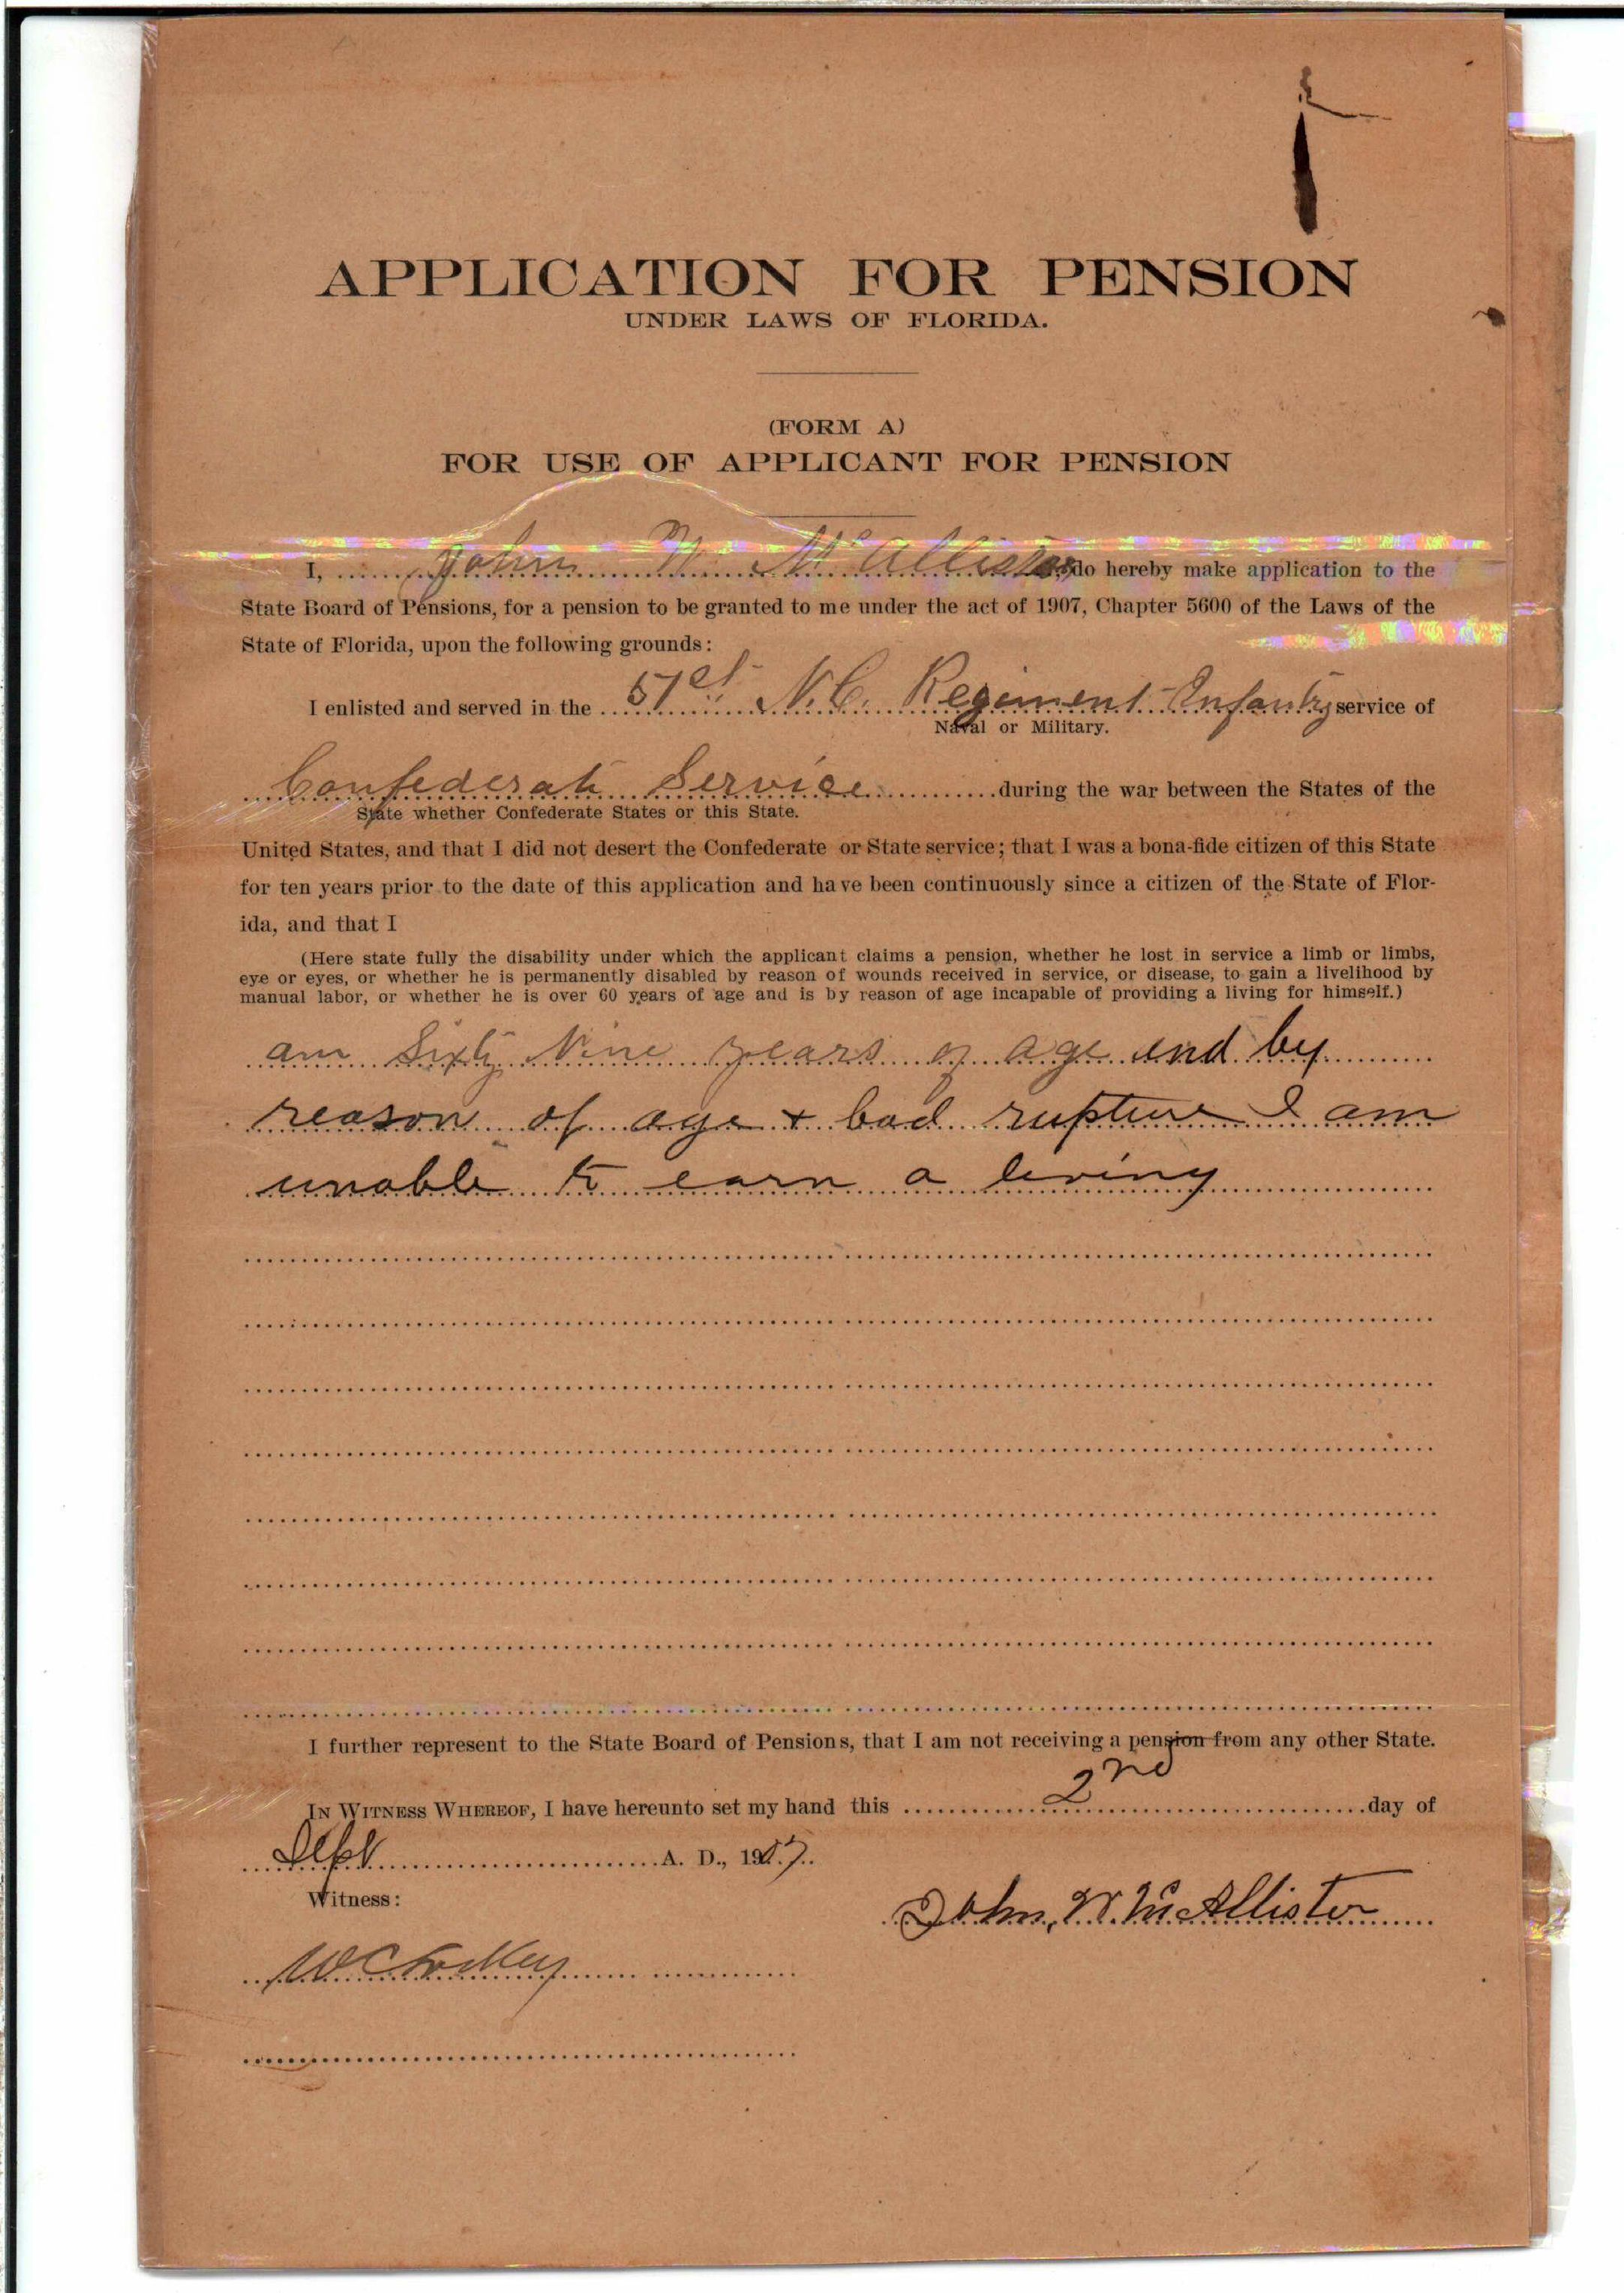 APPLICATION FOR PENSION
UNDER LAWS OF FLORIDA.
(FORM A)
FOR USE OF APPLICANT FOR PENSION
I, John W McAllister do hereby make application to the
State Board of Pensions, for a pension to be granted to me under the act of 1907, Chapter 5600 of the Laws of the
State of Florida, upon the following grounds:
I enlisted and served in the 51st N.C. Regiment Infantry service of
Naval or Military.
Confederate Service during the war between the States of the
State whether Confederate States or this State.
United States, and that I did not desert the Confederate or State service; that I was a bona-fide citizen of this State
for ten years prior to the date of this application and have been continuously since a citizen of the State of Flor-
ida, and that I
(Here state fully the disability under which the applicant claims a pension, whether he lost in service a limb or limbs,
eye or eyes, or whether he is permanently disabled by reason of wounds received in service, or disease, to gain a livelihood by
manual labor, or whether he is over 60 years of age and is by reason of age incapable of providing a living for himself.)
am Sixty Nine years of age and by
reason of age + bad rupture I am
unable to earn a living
I further represent to the State Board of Pensions, that I am not receiving a pension from any other State.
IN WITNESS WHEREOF, I have hereunto set my hand this 2nd day of
Sept A. D., 1907.
Witness:
John, W. McAllister
W C